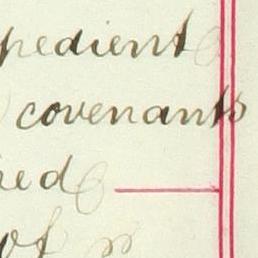 pedient
covenants
ed
of